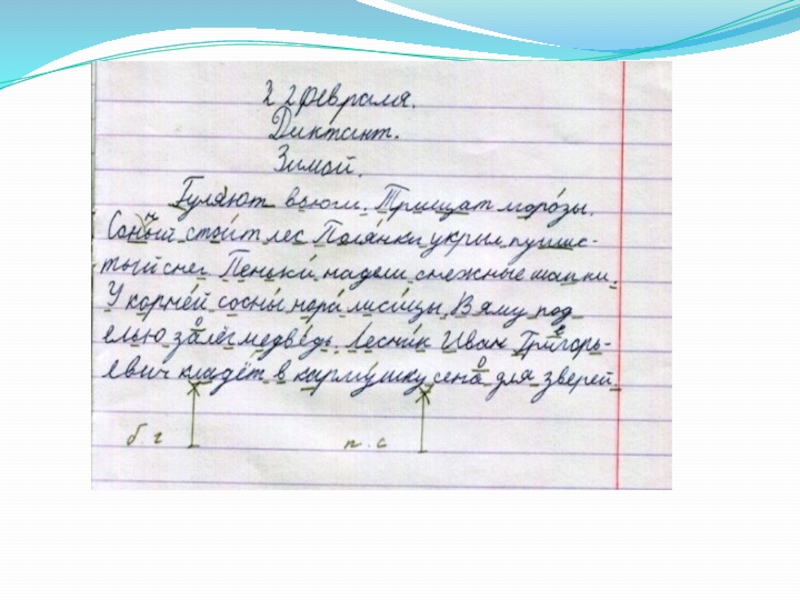 22 февраля.
Диктант.
Зимой.
Гуляют вьюги. Трищат морозы.
Соный стоит лес Полянки укрыл пушис-
тый снег. Пеньки надели снежные шапки.
У корней сосны нора лисицы. В яму под
елью залёг медведь. Лесник Иван Григорь-
евич кладёт в кармушку сена для зверей.
б. г п. с